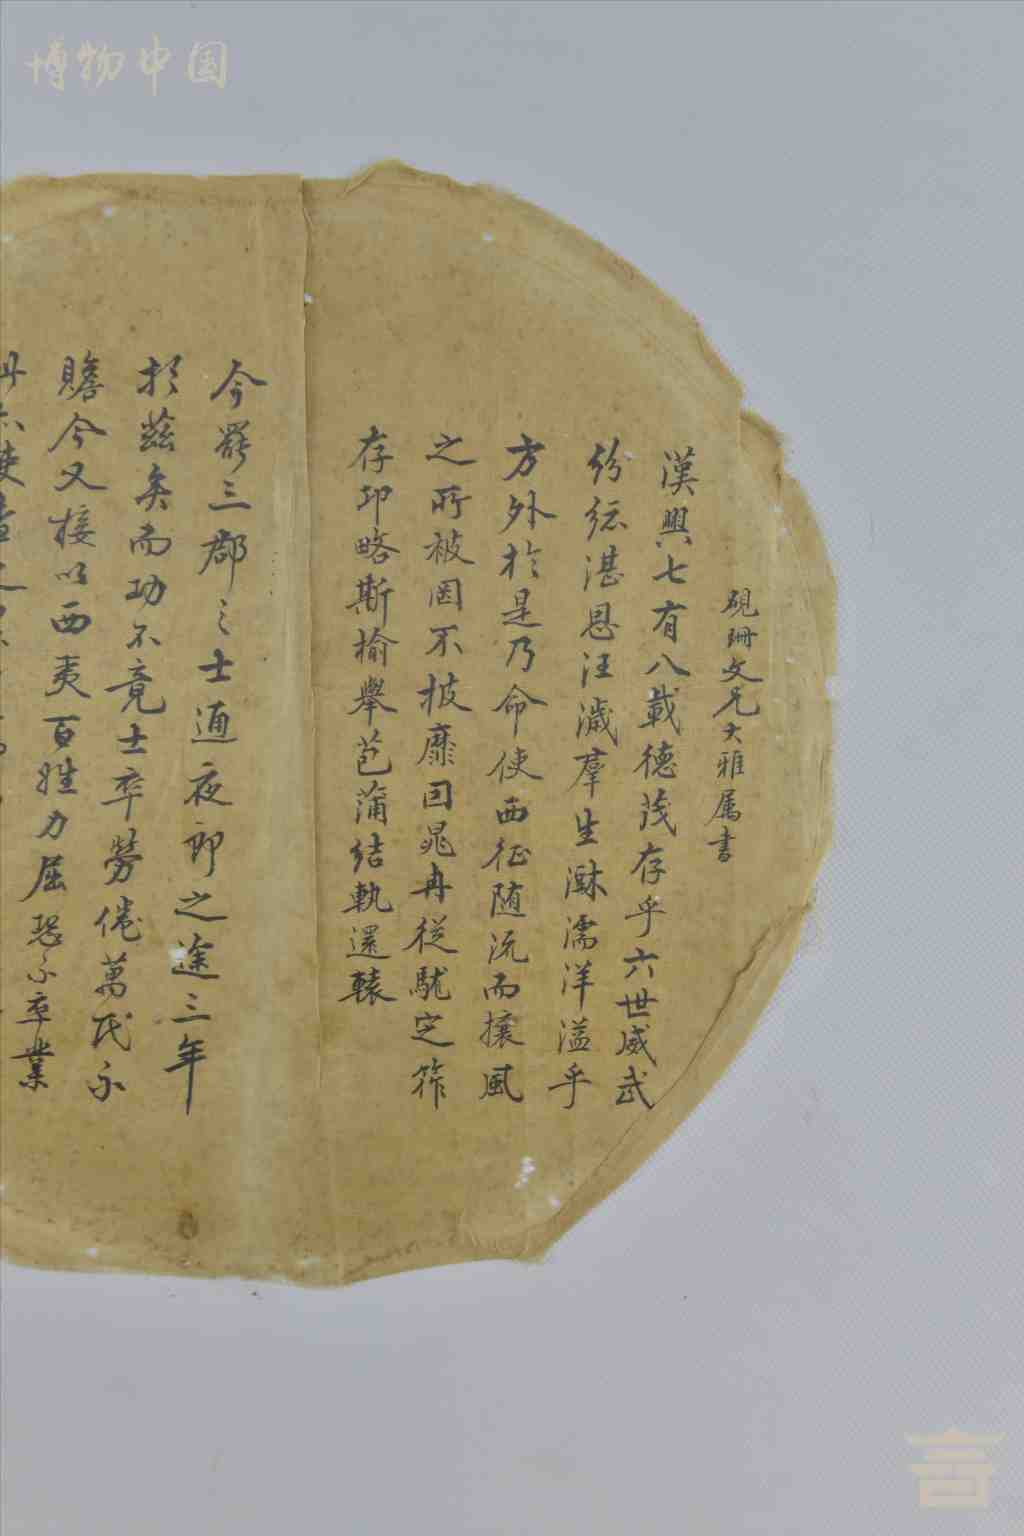 博物中国
硯珊文兄大雅属書
漢興七有八載德茂存乎六世威武
紛紜湛恩汪濊羣生霑濡洋溢乎
方外於是乃命使西征随流而攘風
之所被罔不披靡因晁冉從駹定筰
存卭略斯榆舉苞蒲結軌還轅
今罷三郡之士通夜郎之途三年
於茲矣而功不竟士卒勞倦萬民不
贍今又接以西夷百姓力屈恐不卒業